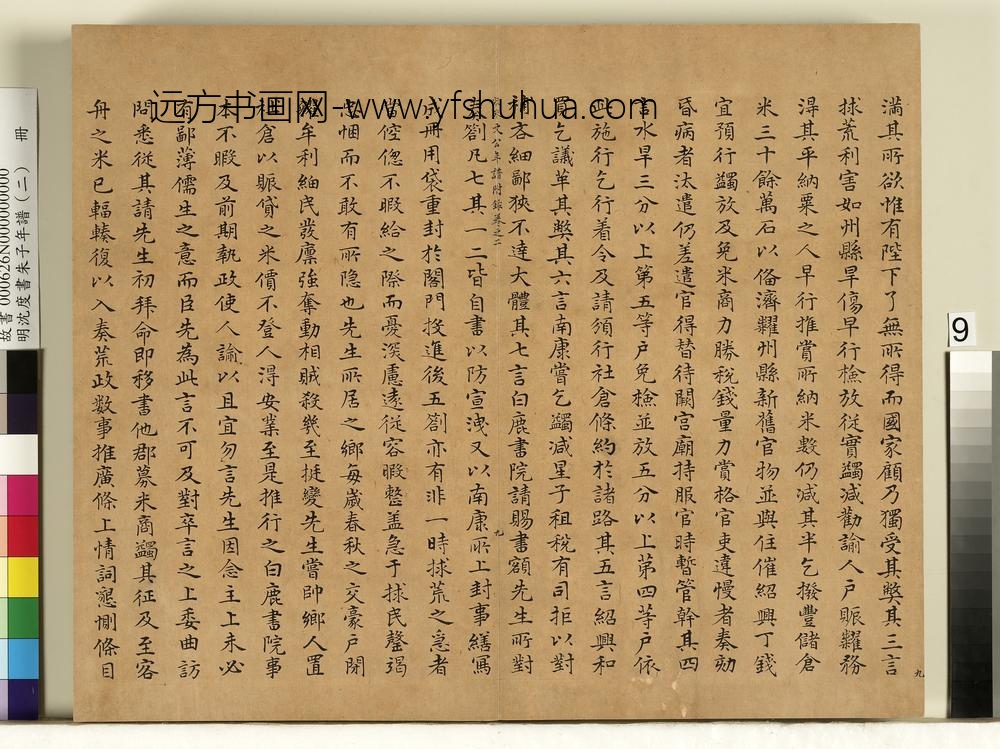 滿其所欲惟有陛下了無所得而國家顧乃獨受其獘其三言
捄荒利害如州縣旱傷早行檢放從實蠲减勸諭人戶賑糶務
得其平納粟之人早行推賞所納米數仍减其半乞撥豐儲倉
米三十餘萬石以俻濟糶州縣新舊官物並與住催紹興丁錢
宜預行蠲放及免米商力勝稅錢量力賞格官吏違慢者奏劾
昏病者汰遣仍差遣官得替待闕宫廟持服官時暫管幹其四
言水旱三分以上第五等戶免檢並放五分以上苐四等戶依
此施行乞行着令及請湏行社倉條約於諸路其五言紹興和
買乞議革其獘其六言南康嘗乞蠲减星子租稅有司拒以對
補吝細鄙狹不達大體其七言白鹿書院請賜書額先生所對
文公年譜附錄卷之二
奏劄凡七其一二皆自書以防宣洩又以南康所上封事繕寫
成冊用袋重封於閤門投進後五劄亦有非一時捄荒之急者
當倥偬不暇給之際而憂深慮遠從容暇整盖急于捄民罄竭
忠悃而不敢有所隐也先生所居之鄉每歲春秋之交豪戶閉
糴牟利細民發廪強奪動相賊殺幾至挻變先生嘗帥鄉人置
社倉以賑貸之米價不登人得安業至是推行之白鹿書院事
本不暇及前期執政使人諭以且宜勿言先生因念主上未必
有鄙薄儒生之意而臣先為此言不可及對卒言之上委曲訪
問悉從其請先生初拜命即移書他郡募米商蠲其征及至客
舟之米已輻輳復以入奏荒政数事推廣條上情詞懇惻條目
九
九
远方书画网-www.yfshuhua.com
9
故書 000626N000000000
明沈度書朱子年譜(二) 冊